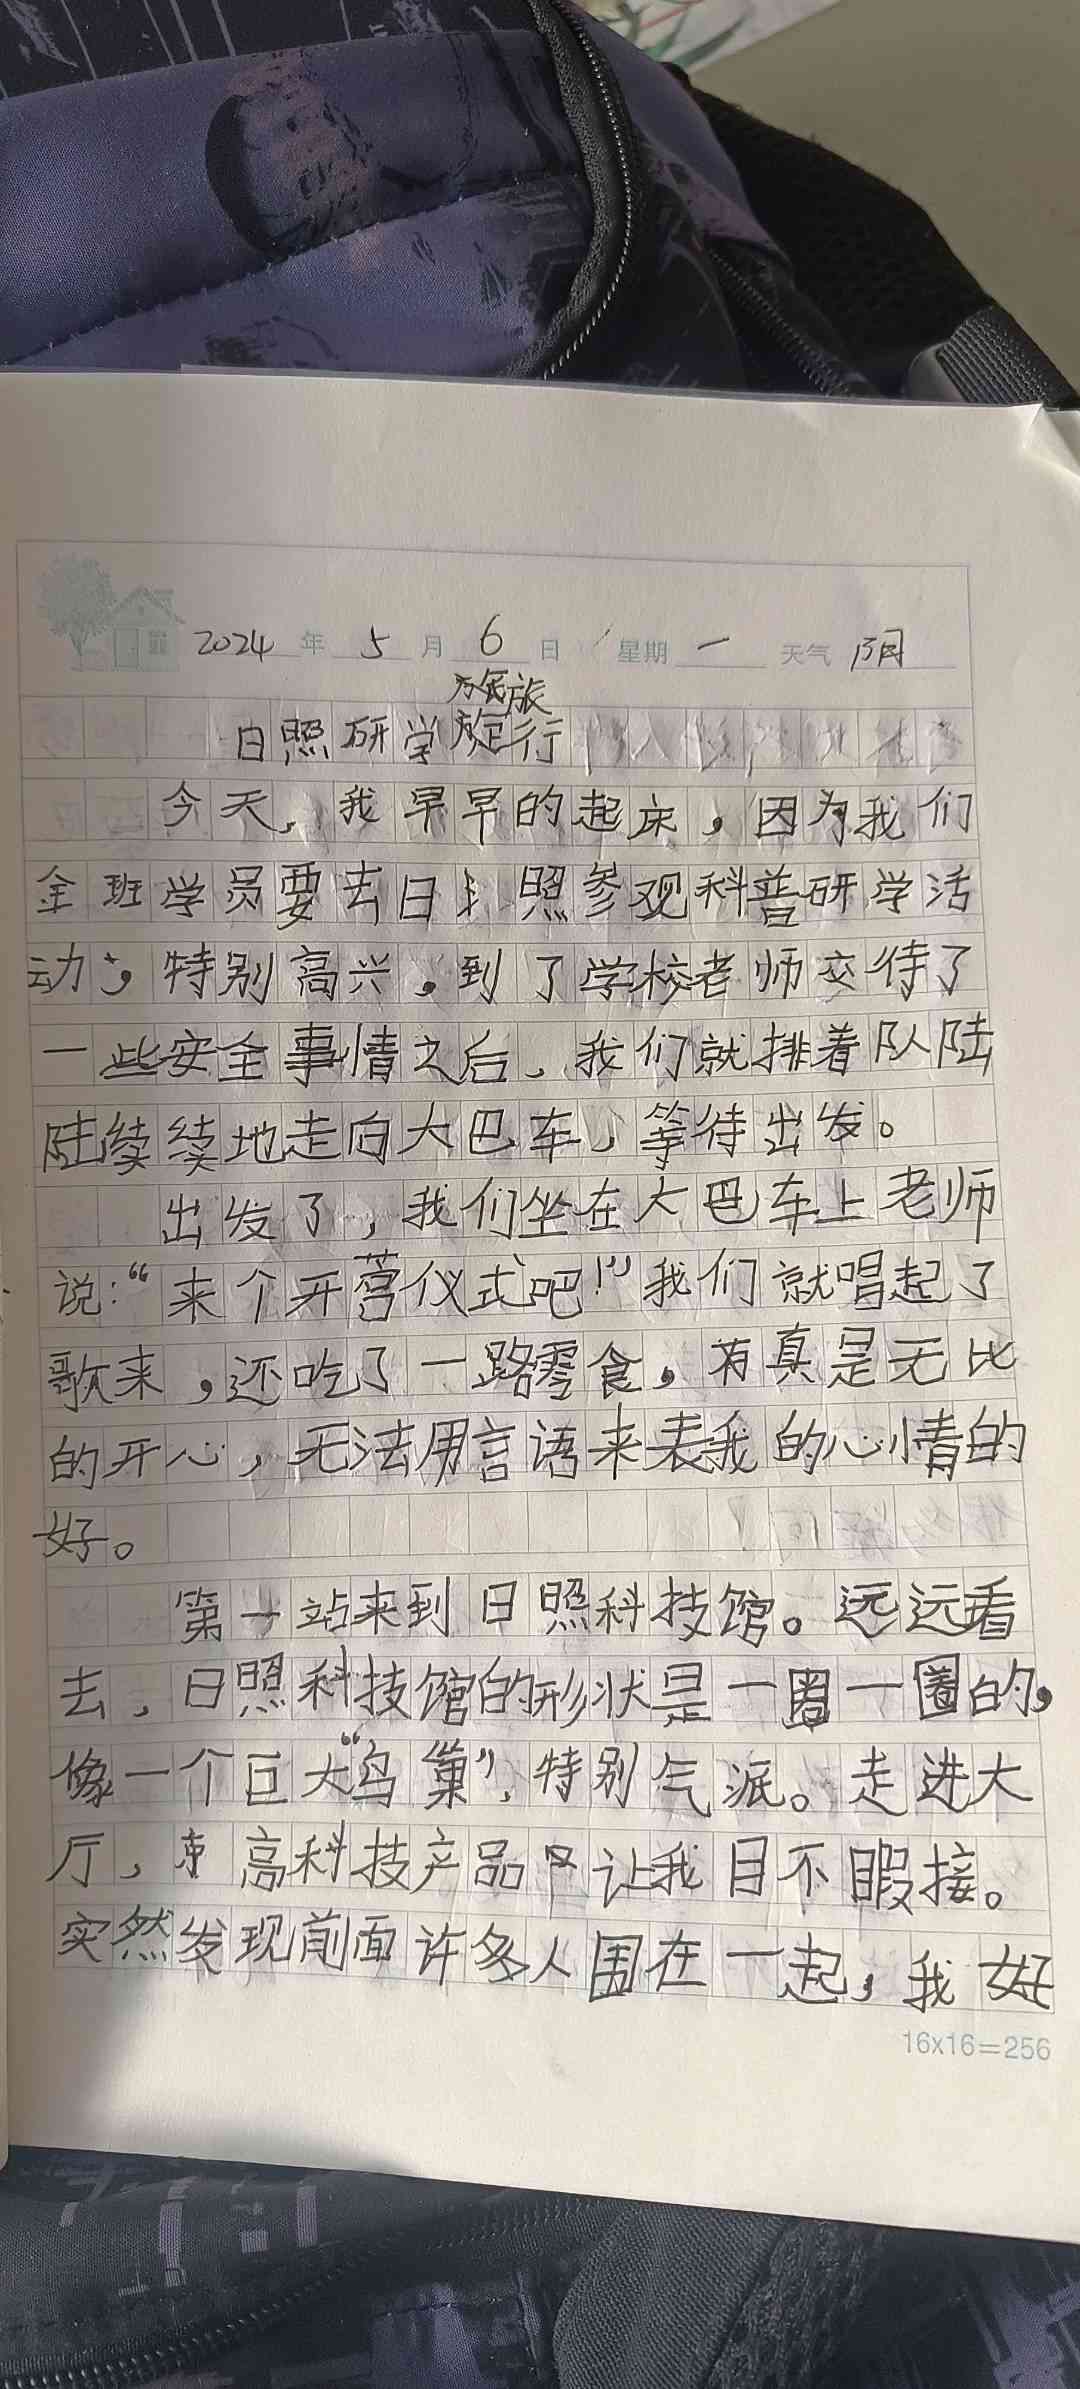 2024年 5月 6日 星期 一 天气 阴
旅
日照研学旅行
今天,我早早的起床,因为我们
全班学员要去日照参观科普研学活
动,特别高兴,到了学校老师交待了
一些安全事情之后,我们就排着队陆
陆续续地走向大巴车,等待出发。
出发了,我们坐在大巴车上老师
说:“来个开营仪式吧!”我们就唱起了
歌来,还吃了一路零食,真是无比
的开心,无法用言语来表我的心情的
好。
第一站来到日照科技馆。远远看
去,日照科技馆的形状是一圈一圈的,
像一个巨大“鸟巢”,特别气派。走进大
厅,高科技产品让我目不暇接。
突然发现前面许多人围在一起,我好
16x16=256